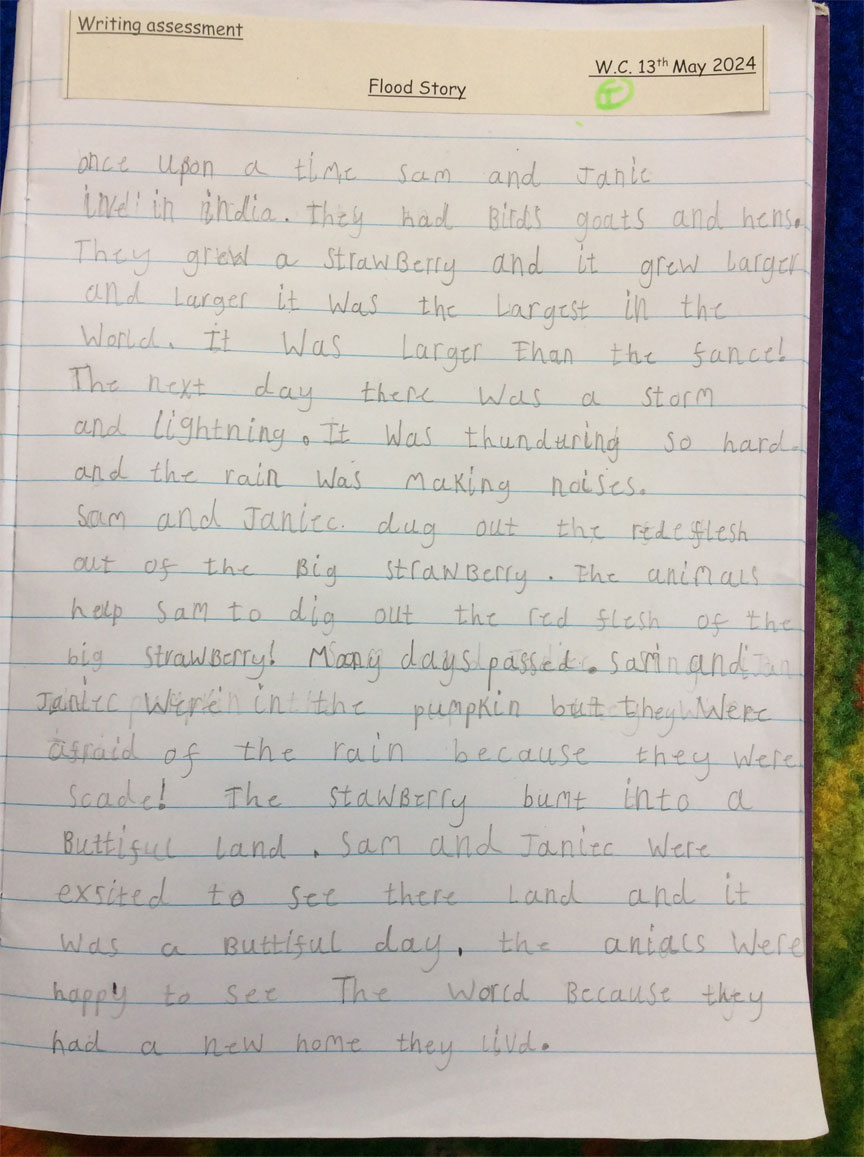 Writing assessment
W.C. 13th May 2024
Flood Story
once upon a time Sam and Janie
live' in india. They had Birds goats and hens.
They grew a strawBerry and it grew larger
and Larger it was the Largest in the
World. It Was Larger Than the fance!
The next day there was a storm
and lightning. It was thunduring so hard
and the rain was making noises.
Sam and Janiec dug out the rede flesh
out of the Big strawBerry. The animals
help Sam to dig out the red flesh of the
big strawBerry! Many days passed. Sam and
Janiec were in the pumpkin but they Were
afraid of the rain because they were
Scade! The stawBerry bumt into a
Buttiful land. Sam and Janiec were
exsited to see there Land and it
was a Buttiful day, the anials were
happy to see The World Because they
had a new home they livd.